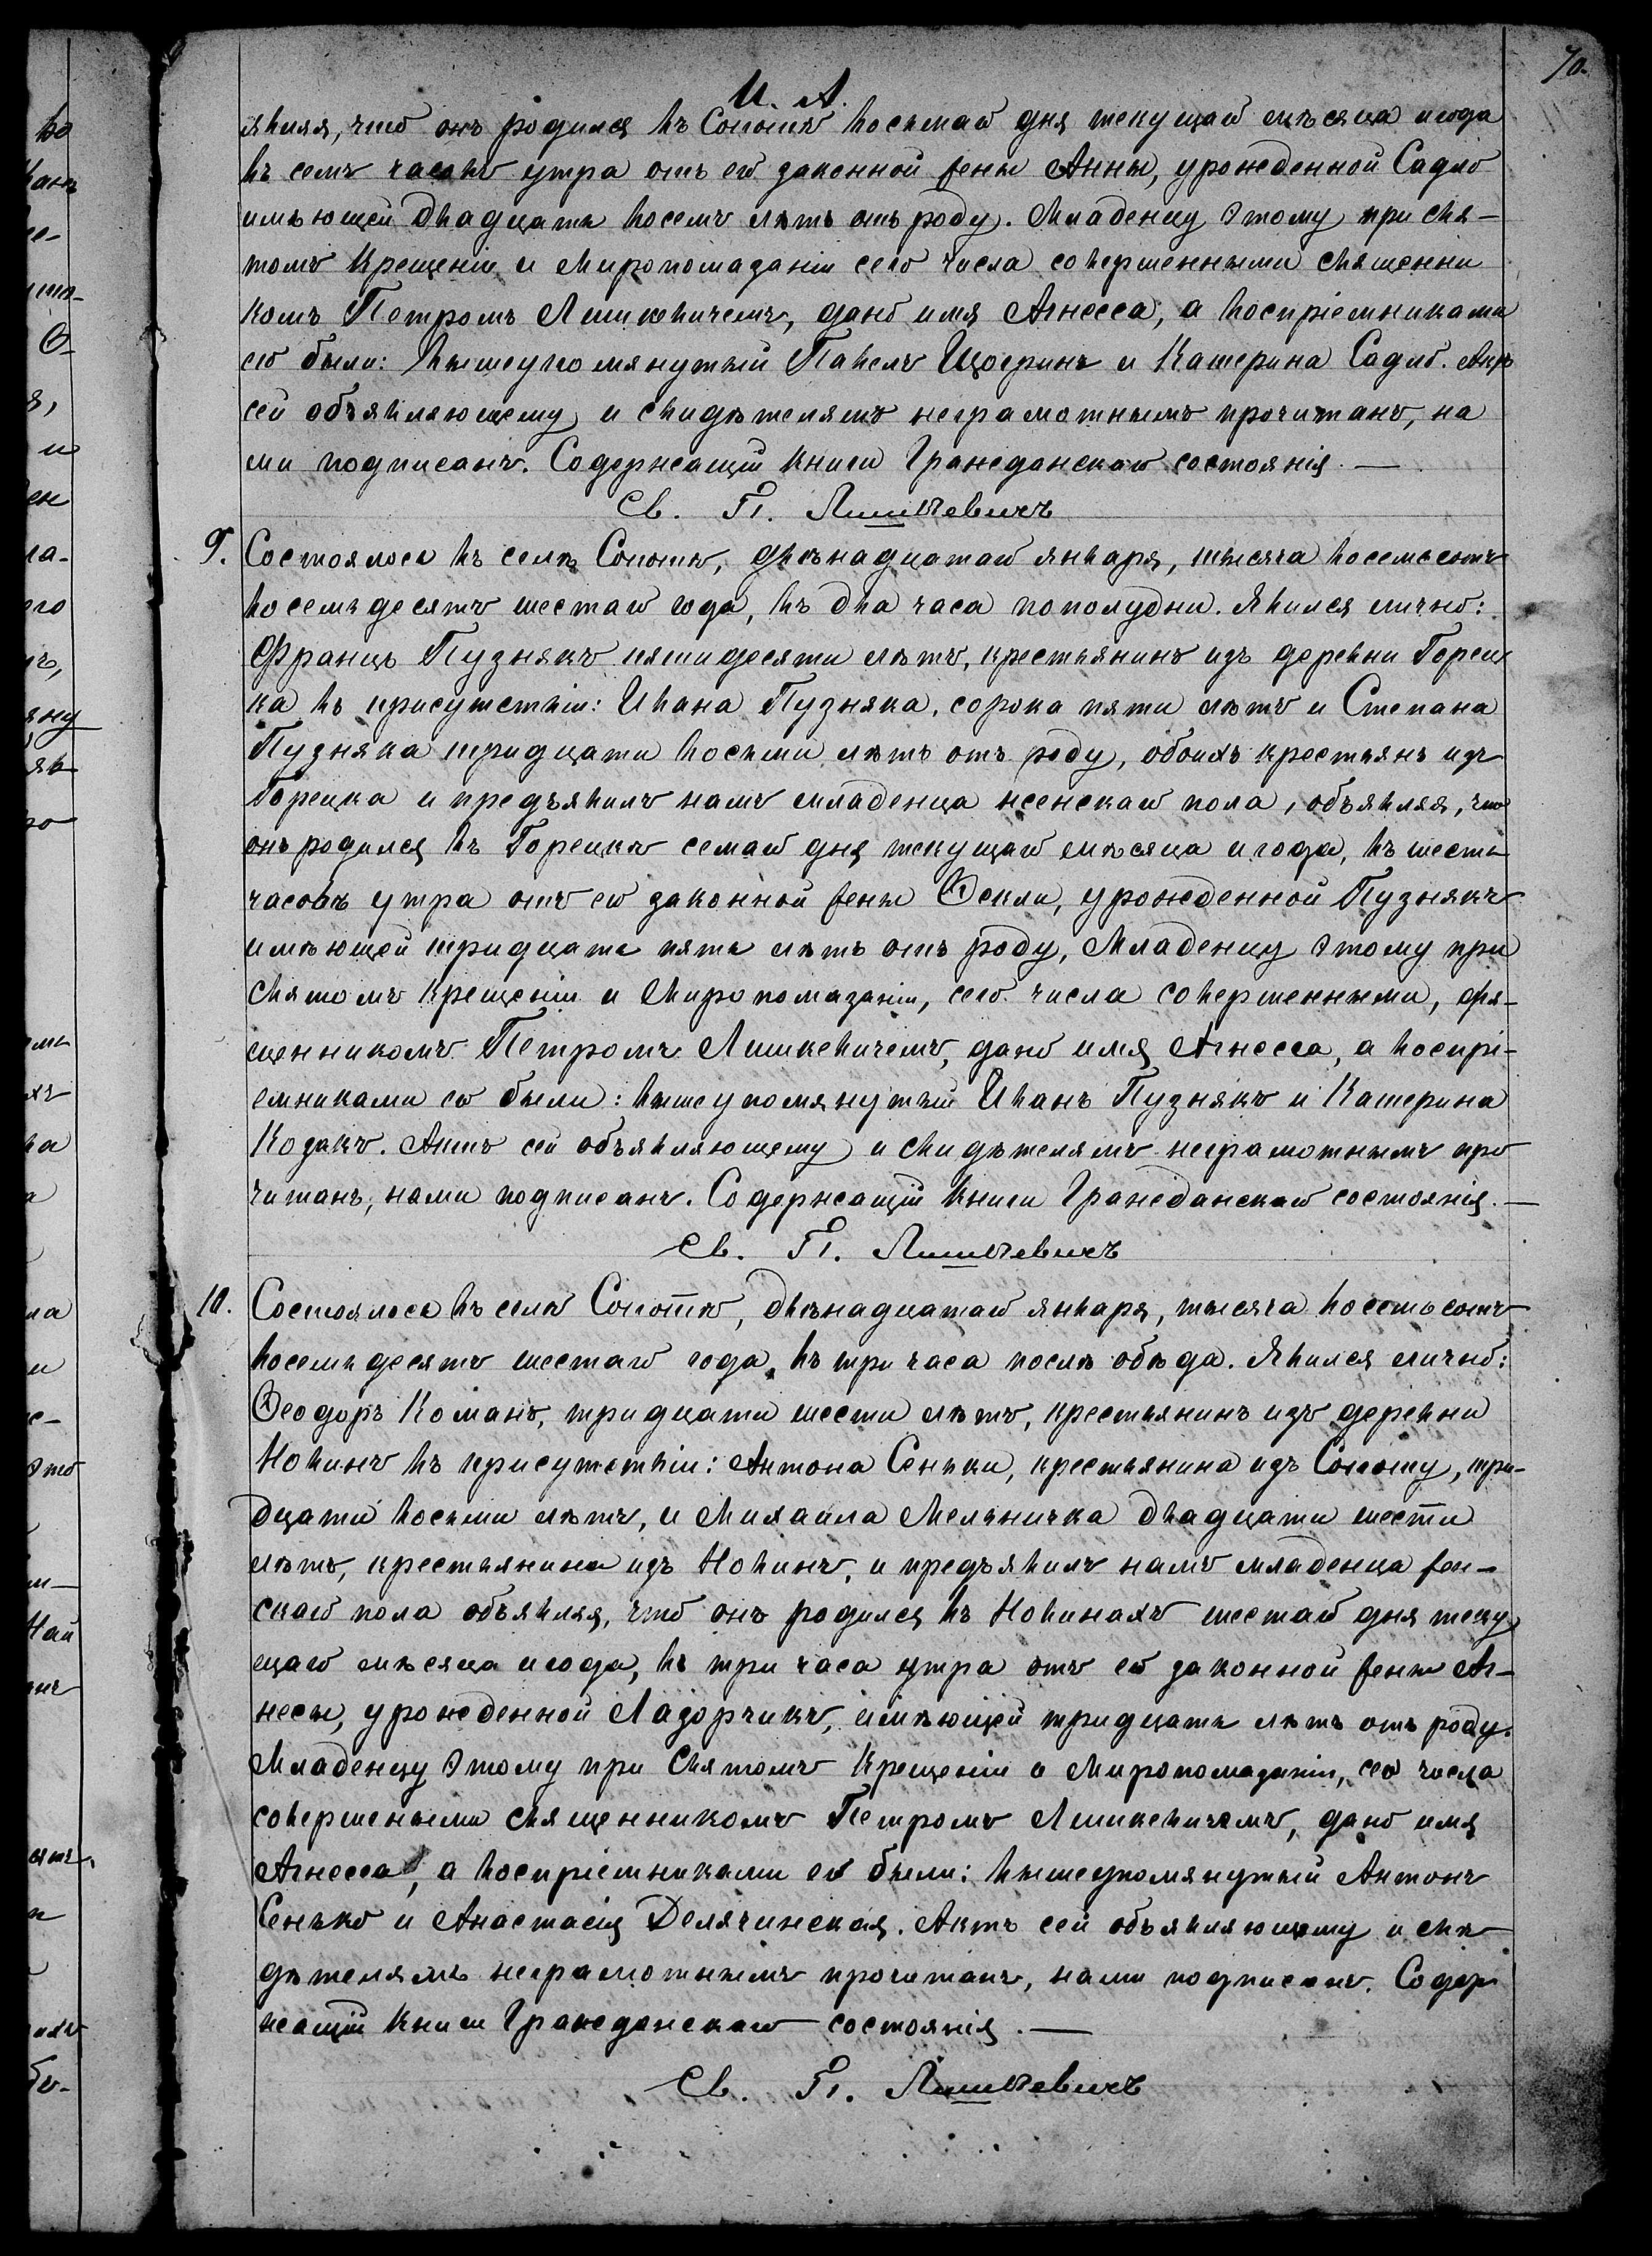 70.
И. А.
являя, что онъ родился въ Сопотѣ восьмаго дня текущаго мѣсяца и года
въ семъ часовъ утра отъ его законной жены Анны, урожденной Садло
имѣющей двадцать восемъ лѣтъ отъ роду. Младенцу этому при свя-
томъ крещеніи и Миропомазаніи сего числа совершенными священни
комъ Петромъ Лишкевичемъ, дано имя Агнесса, а воспріемниками
его были: вышеупомянутый Павелъ Щоеринъ и Катерина Садло. Актъ
сей объявляющему и свидѣтелямъ неграмотнымъ прочитанъ, на
ми подписанъ. Содержащій книги Гражданскаго состоянія. —
Св. П. Лишкевичъ
9. Состоялось въ селѣ Сопотѣ, двѣнадцатаго января, тысяча восемьсотъ
восемьдесятъ шестаго года, въ два часа пополудни. Явился лично:
Францъ Пузнякъ пятидесяти лѣтъ, крестьянинъ изъ деревни Горец
ка въ присутствіи: Ивана Пузняка, сорока пяти лѣтъ и Степана
Пузняка тридцати восьми лѣтъ отъ роду, обоихъ крестьянъ изъ
Горецка и предъявилъ намъ младенца женскаго пола, объявляя, что
онъ родился въ Горецкѣ семаго дня текущаго мѣсяца и года, въ шесть
часовъ утра отъ его законной жены Ѳекли, урожденной Пузнякъ
имѣющей тридцать пять лѣтъ отъ роду, Младенцу этому при
святомъ крещеніи и Миропомазаніи, сего числа совершенными, свя-
щенникомъ Петромъ Лишкевичемъ, дано имя Агнесса, а воспрі-
емниками его были: вышеупомянутый Иванъ Пузнякъ и Катерина
Козакъ. Актъ сей объявляющему и свидѣтелямъ неграмотнымъ про
читанъ, нами подписанъ. Содержащій книги Гражданскаго состоянія. —
Св. П. Лишкевичъ
10. Состоялось въ селѣ Сопотѣ, двѣнадцатаго января, тысяча восемьсотъ
восемьдесятъ шестаго года, въ три часа послѣ обѣда. Явился лично:
Ѳеодоръ Команъ, тридцати шести лѣтъ, крестьянинъ изъ деревни
Новинъ въ присутствіи: Антона Сеньки, крестьянина изъ Сопоту, три-
дцати восьми лѣтъ, и Михаила Мельничка двадцати шести
лѣтъ, крестьянина изъ Новинъ, и предъявилъ намъ младенца жен-
скаго пола объявляя, что онъ родился въ Новинахъ шестаго дня теку
щаго мѣсяца и года, въ три часа утра отъ его законной жены Аг-
несы, урожденной Лазорчикъ, имѣющей тридцать лѣтъ отъ роду.
Младенцу этому при Святомъ Крещеніи и Миропомазаніи, сего числа
совершеными священникомъ Петромъ Лишкевичемъ, дано имя
Агнесса, а воспріемниками его были: вышеупомянутый Антонъ
Сенько и Анастасія Делячинская. Актъ сей объявляющему и сви
дѣтелямъ неграмотнымъ прочитанъ, нами подписанъ. Содер
жащій книги Гражданскаго состоянія. —
Св. П. Лишкевичъ